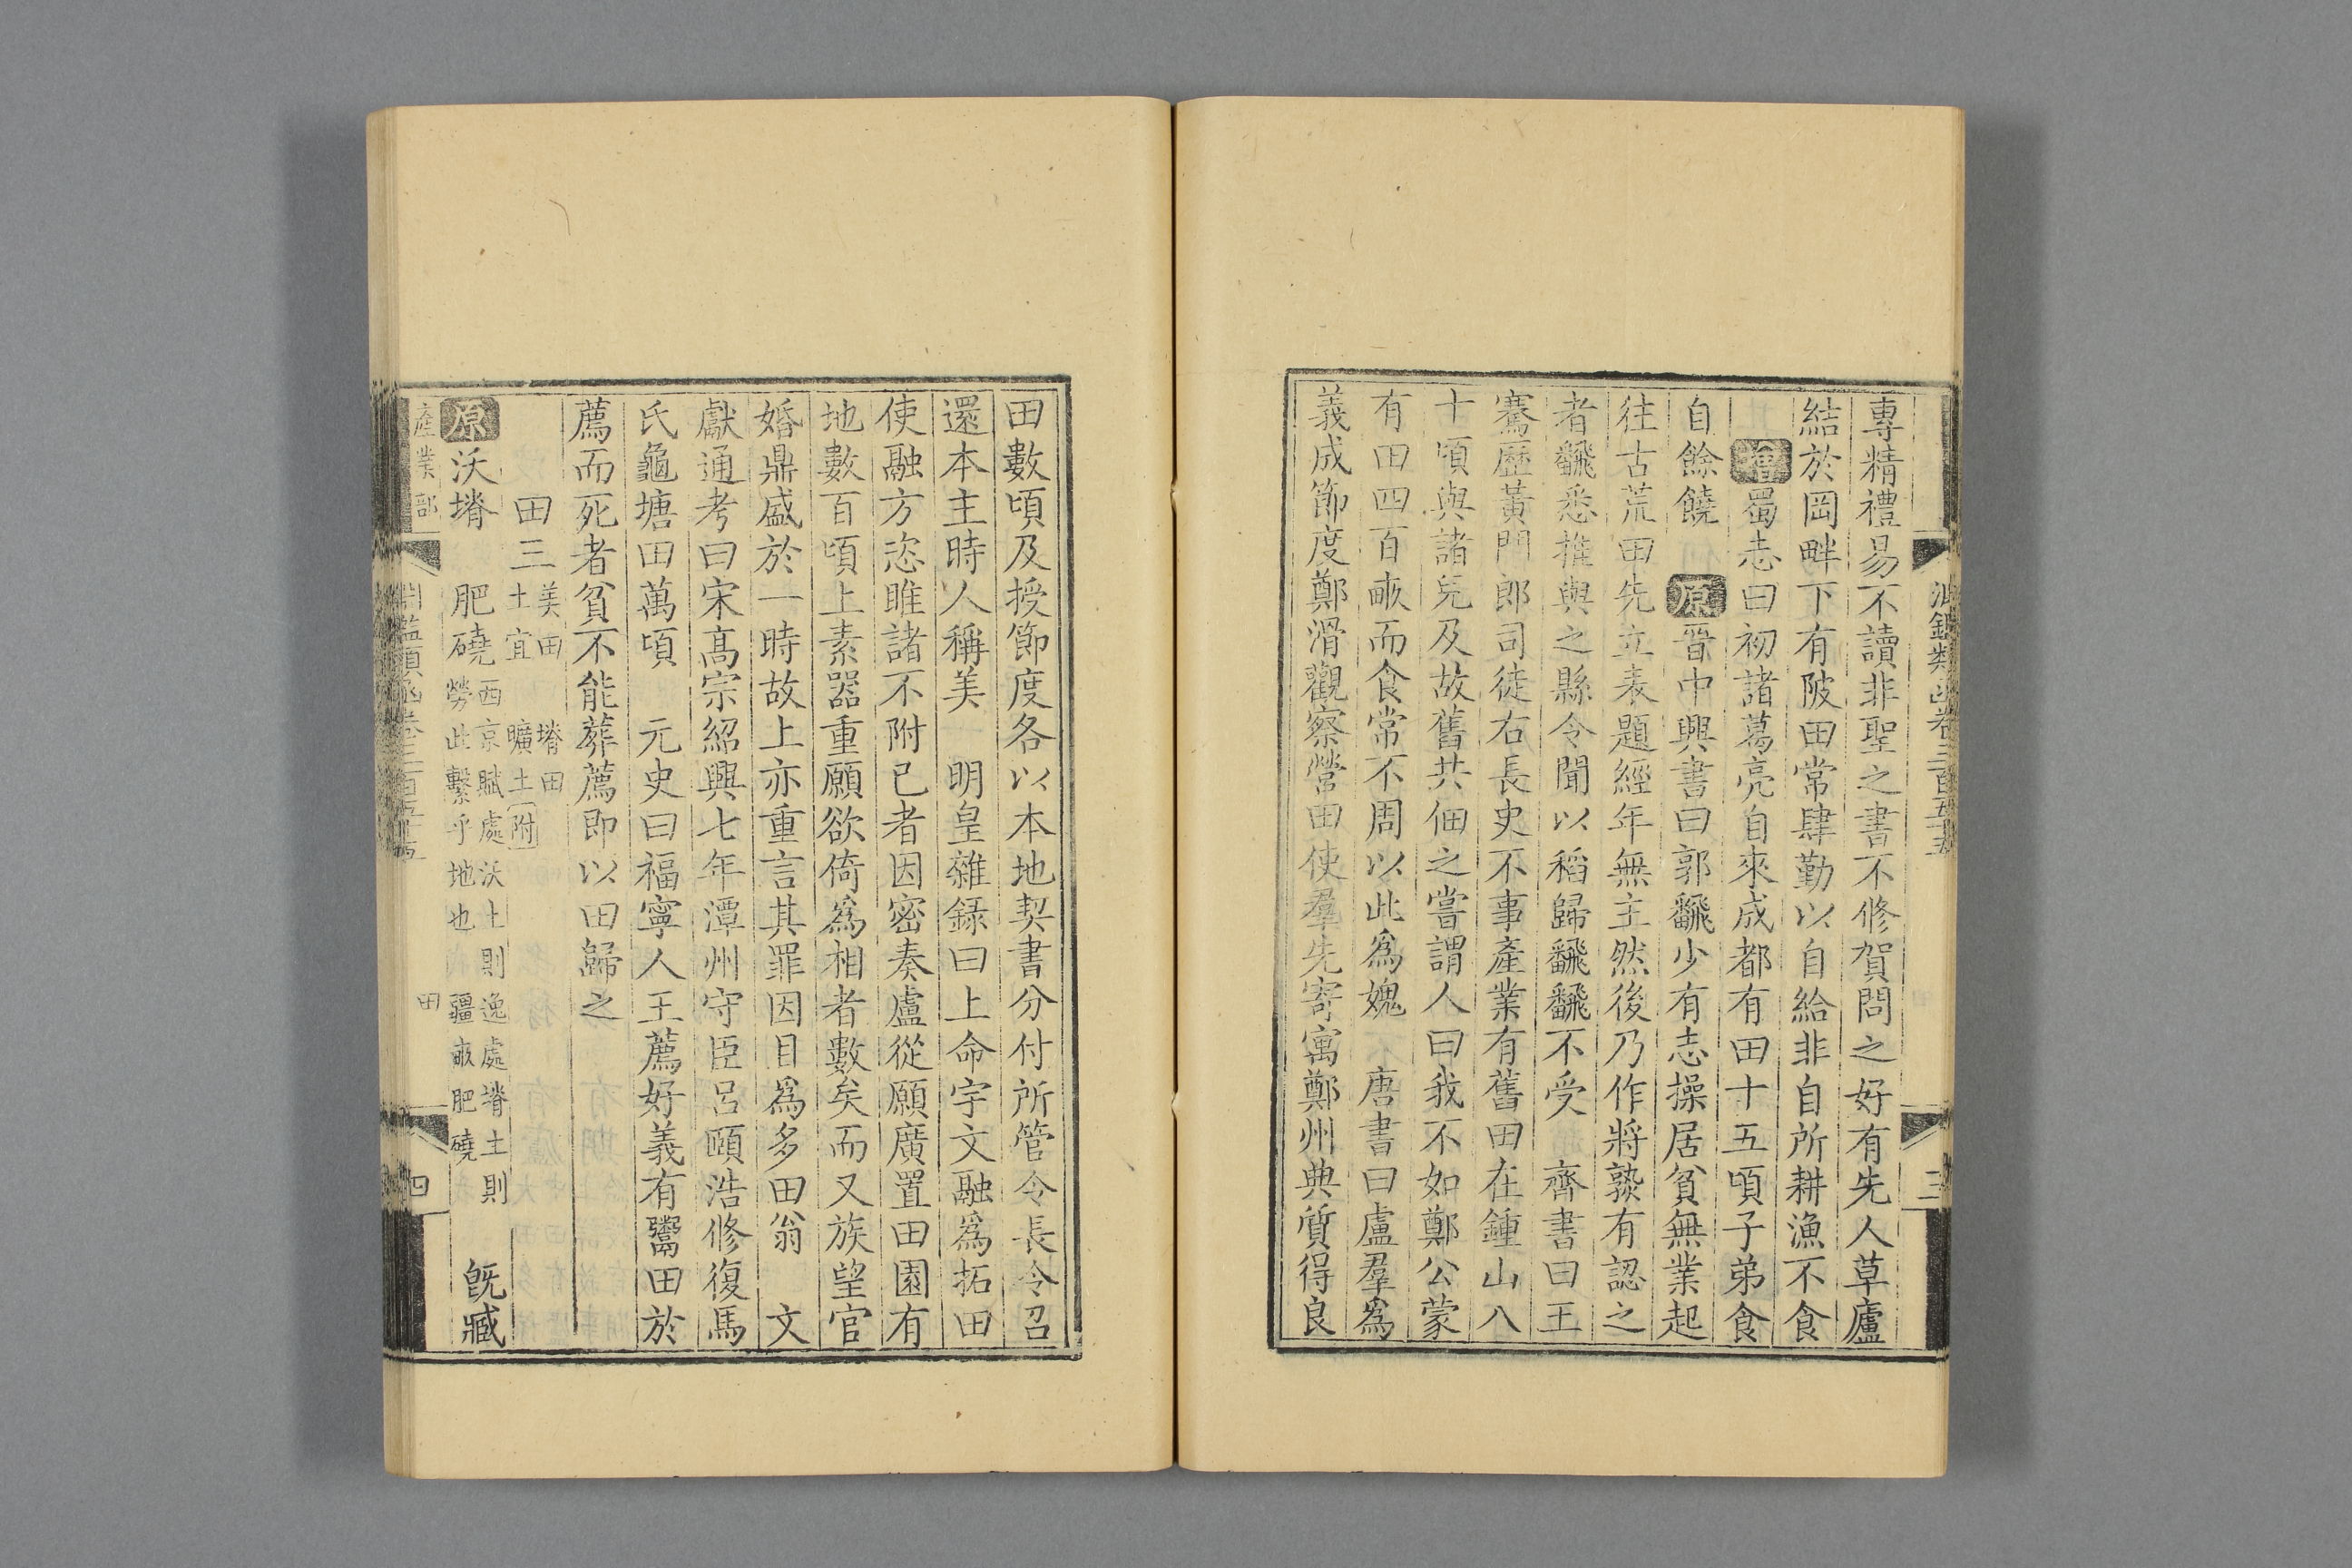 專精禮易不讀非聖之書不修賀問之好有先人草廬
結於岡畔下有陂田常肆勤以自給非自所耕漁不食
增蜀志曰初諸葛亮自來成都有田十五頃子弟食
自餘饒 原晉中興書曰郭翻少有志操居貧無業起
往古荒田先立表題經年無主然後乃作將熟有認之
者飜悉推與之縣令聞以稻歸飜飜不受 齊書曰王
騫歷黃門郎司徒右長史不事產業有舊田在鍾山八
十頃與諸兒及故舊共佃之嘗謂人曰我不如鄭公蒙
有田四百畝而食常不周以此為媿 唐書曰盧羣為
義成節度鄭滑觀察營田使羣先寄寓鄭州典質得良
田數頃及授節度各以本地契書分付所管令長令召
還本主時人稱美 明皇雜録曰上命宇文融為拓田
使融方恣睢諸不附已者因密奏盧從願廣置田園有
地數百頃上素器重願欲倚為相者數矣而又族望官
婚鼎盛於一時故上亦重言其罪因目為多田翁 文
獻通考曰宋高宗紹興七年潭州守臣呂頤浩修復馬
氏龜塘田萬頃 元史曰福寧人王薦好義有鬻田於
薦而死者貧不能葬薦即以田歸之
田三 美田 塉田 土宜 曠土 附
原沃塉 肥磽 西京賦處沃土則逸處塉土則勞此繫乎地也 疆畝肥磽 旣臧
產業部 淵鑑類函卷三百五十五 田 四